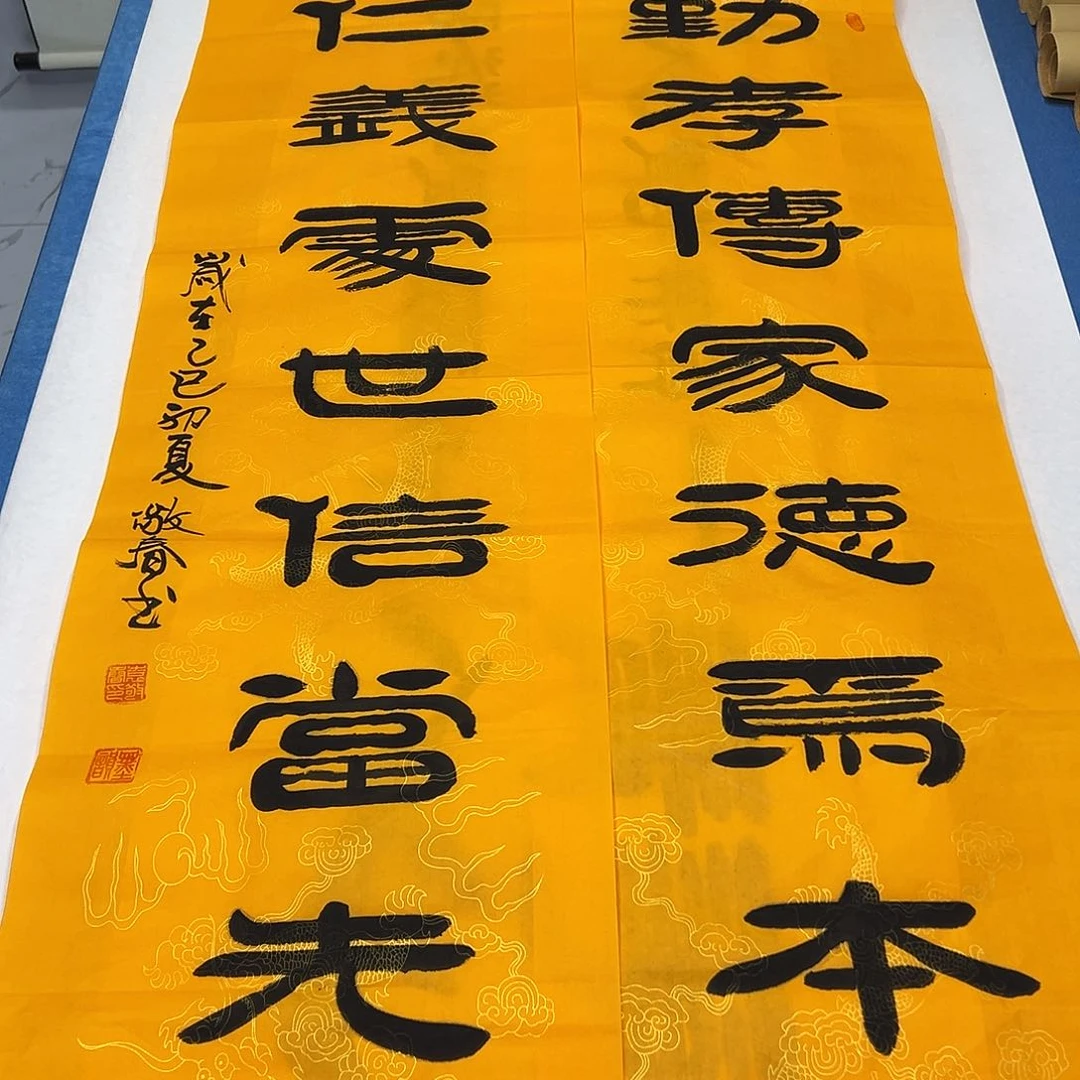 勤孝傳家德為本
仁義處世信當先
歲在乙巳初夏 敬春书